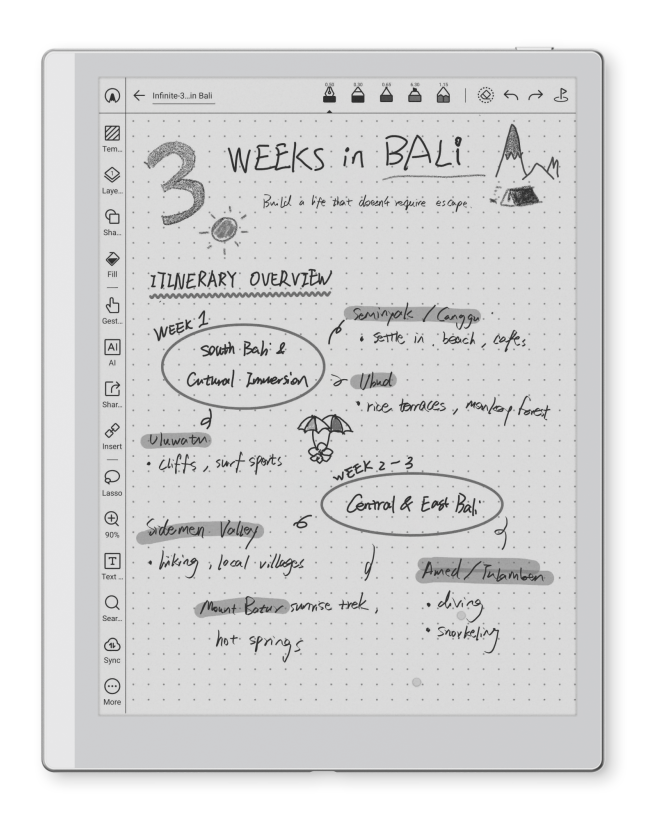 Infinite-3...in Bali
0.50 0.30 0.65 6.30 1.15
Tem...
Laye...
Sha...
Fill
Gest...
AI
AI
Shar...
Insert
Lasso
90%
Text ...
Sear...
Sync
More
3 WEEKS in BALi
Build a life that doesn't require escape.
ITINERARY OVERVIEW
WEEK 1
South Bali &
Cutural Immersion
Seminyak / Canggu
• settle in, beach, cafes
Ubud
• rice terraces, monkey forest
Uluwatu
• cliffs, surf spots
WEEK 2-3
Central & East Bali
Sidemen Valley
• hiking, local villages
Mount Batur sunrise trek,
hot springs
Amed / Tulamben
• diving
• snorkeling